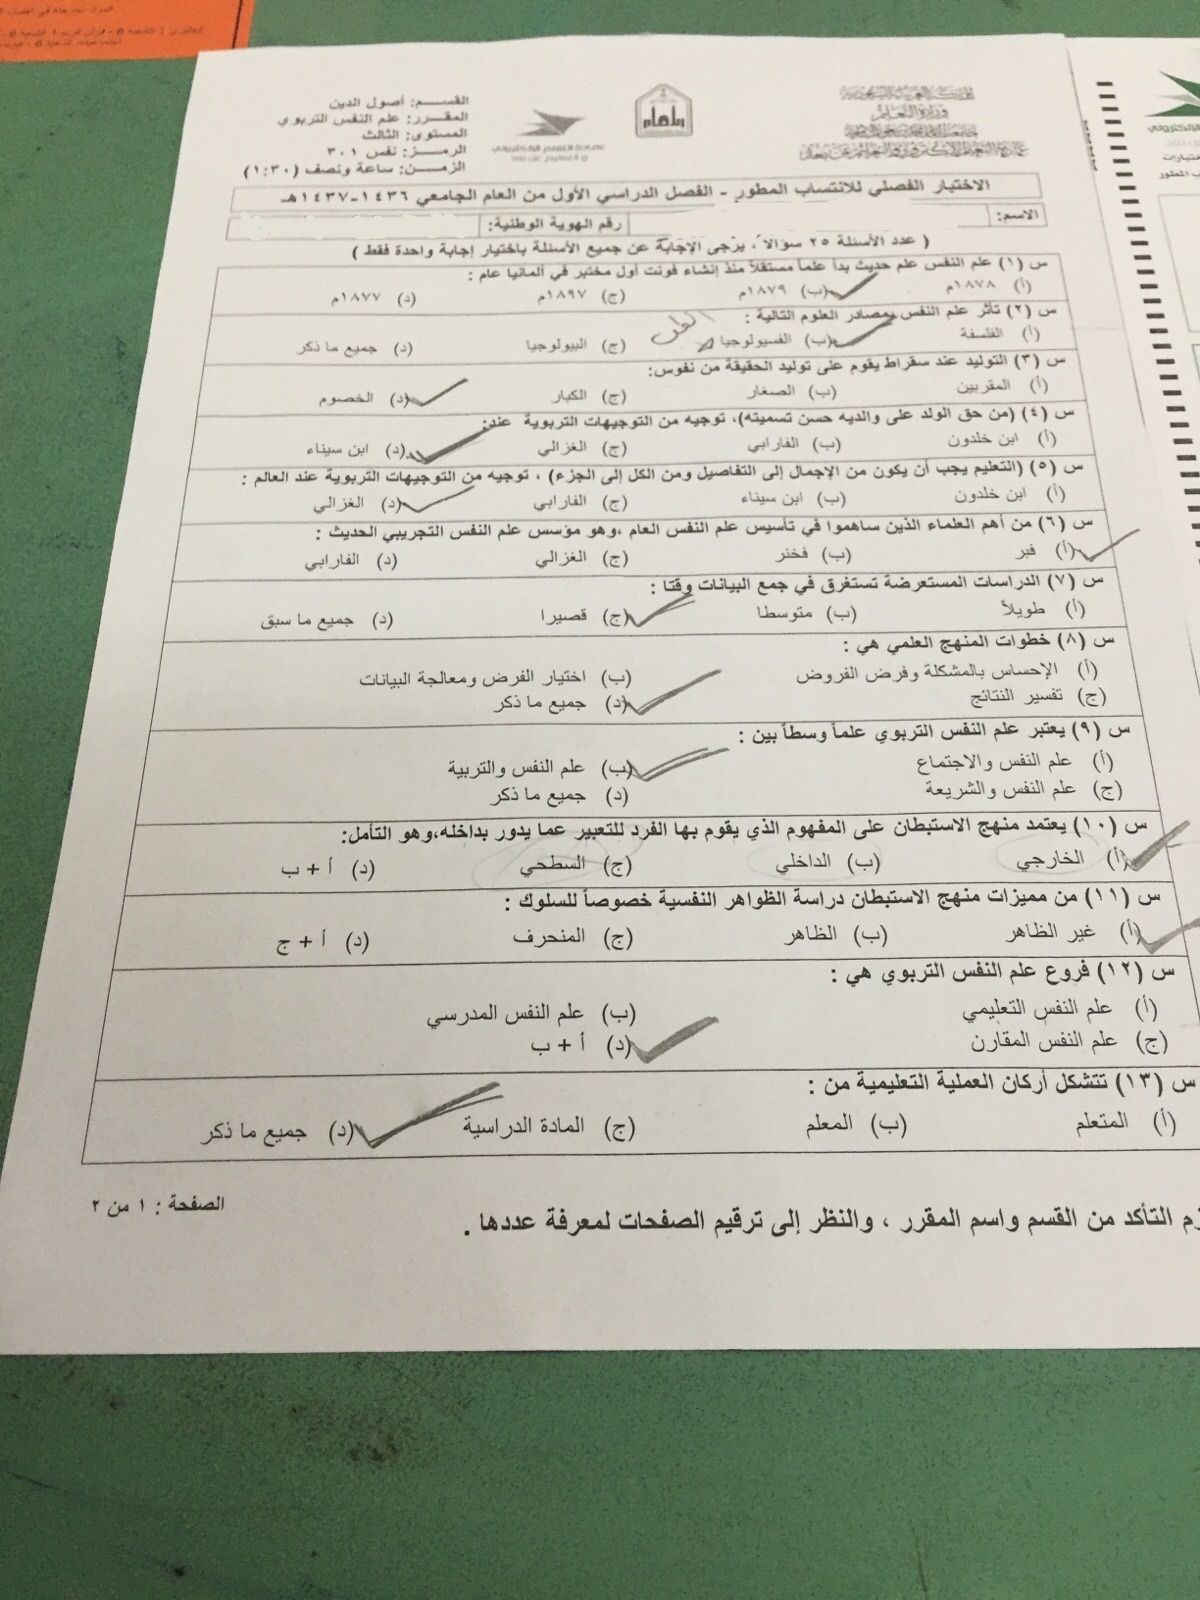 القسم: أصول الدين
المقرر: علم النفس التربوي
المستوى: الثالث
الرمز: نفس ٣٠١
الزمن: ساعة ونصف (١:٣٠)
وزارة التعليم
الاختبار الفصلي للانتساب المطور - الفصل الدراسي الأول من العام الجامعي ١٤٣٦-١٤٣٧هـ
الاسم: رقم الهوية الوطنية:
( عدد الأسئلة ٢٥ سؤالاً، يرجى الإجابة عن جميع الأسئلة باختيار إجابة واحدة فقط )
س (١) علم النفس علم حديث بدأ علماً مستقلاً منذ إنشاء فونت أول مختبر في ألمانيا عام :
(أ) ١٨٧٨م (ب) ١٨٧٩م (ج) ١٨٩٧م (د) ١٨٧٧م
س (٢) تأثر علم النفس بمصادر العلوم التالية :
(أ) الفلسفة (ب) الفسيولوجيا (ج) البيولوجيا (د) جميع ما ذكر
س (٣) التوليد عند سقراط يقوم على توليد الحقيقة من نفوس:
(أ) المقربين (ب) الصغار (ج) الكبار (د) الخصوم
س (٤) (من حق الولد على والديه حسن تسميته)، توجيه من التوجيهات التربوية عند:
(أ) ابن خلدون (ب) الفارابي (ج) الغزالي (د) ابن سيناء
س (٥) (التعليم يجب أن يكون من الإجمال إلى التفاصيل ومن الكل إلى الجزء) ، توجيه من التوجيهات التربوية عند العالم :
(أ) ابن خلدون (ب) ابن سيناء (ج) الفارابي (د) الغزالي
س (٦) من أهم العلماء الذين ساهموا في تأسيس علم النفس العام ،وهو مؤسس علم النفس التجريبي الحديث :
(أ) فبر (ب) فخنر (ج) الغزالي (د) الفارابي
س (٧) الدراسات المستعرضة تستغرق في جمع البيانات وقتا :
(أ) طويلاً (ب) متوسطا (ج) قصيرا (د) جميع ما سبق
س (٨) خطوات المنهج العلمي هي :
(أ) الإحساس بالمشكلة وفرض الفروض (ب) اختيار الفرض ومعالجة البيانات
(ج) تفسير النتائج (د) جميع ما ذكر
س (٩) يعتبر علم النفس التربوي علماً وسطاً بين :
(أ) علم النفس والاجتماع (ب) علم النفس والتربية
(ج) علم النفس والشريعة (د) جميع ما ذكر
س (١٠) يعتمد منهج الاستبطان على المفهوم الذي يقوم بها الفرد للتعبير عما يدور بداخله،وهو التأمل:
(أ) الخارجي (ب) الداخلي (ج) السطحي (د) أ + ب
س (١١) من مميزات منهج الاستبطان دراسة الظواهر النفسية خصوصاً للسلوك :
(أ) غير الظاهر (ب) الظاهر (ج) المنحرف (د) أ + ج
س (١٢) فروع علم النفس التربوي هي :
(أ) علم النفس التعليمي (ب) علم النفس المدرسي
(ج) علم النفس المقارن (د) أ + ب
س (١٣) تتشكل أركان العملية التعليمية من :
(أ) المتعلم (ب) المعلم (ج) المادة الدراسية (د) جميع ما ذكر
الصفحة : ١ من ٢
التأكد من القسم واسم المقرر ، والنظر إلى ترقيم الصفحات لمعرفة عددها .